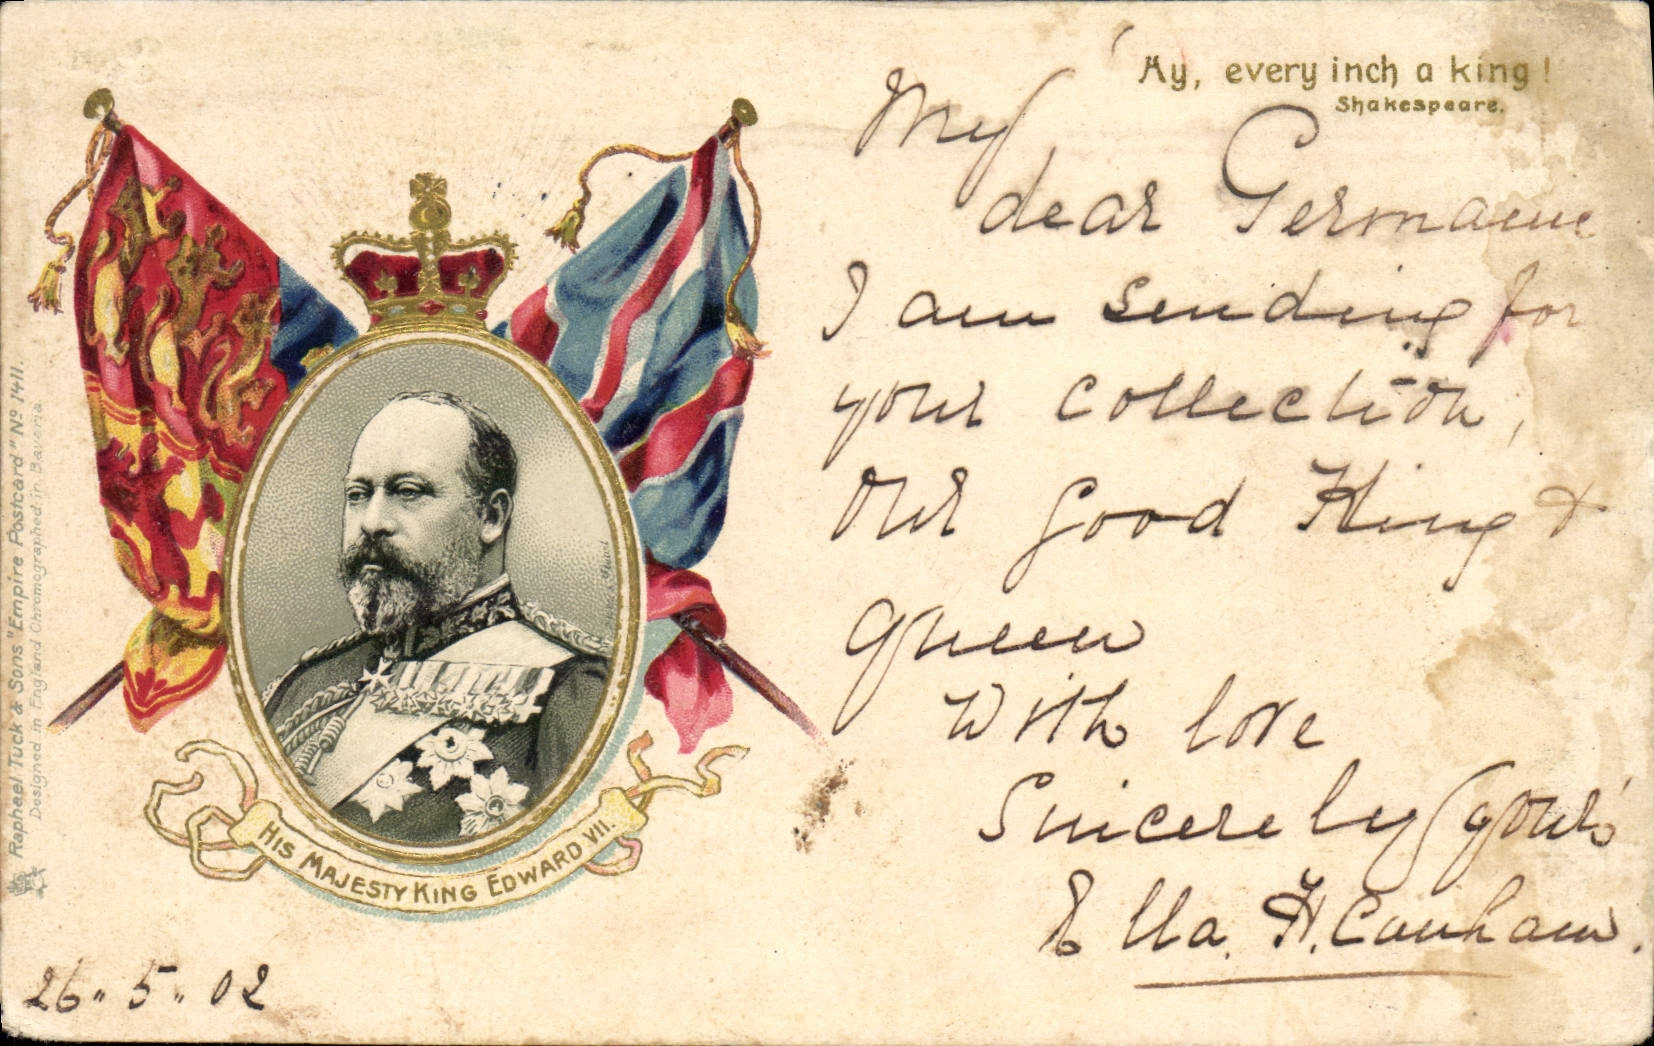 Ay, every inch a king!
Shakespeare.
My
dear Germaine
I am sending for
your collection,
our good King &
queen
With love
Sincerely yours
Ella. H. Canham.
HIS MAJESTY KING EDWARD VII.
26.. 5.. 02
Raphael Tuck & Sons "Empire Postcard" No 1411.
Designed in England Chromographed in Bavaria.